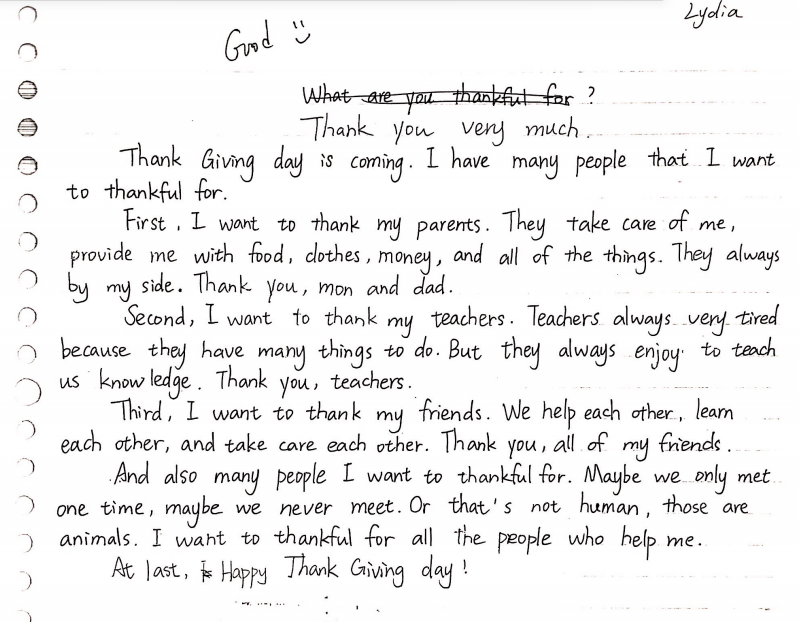 Lydia
Good
What are you thankful for ?
Thank you very much.
Thank Giving day is coming. I have many people that I want
to thankful for.
First, I want to thank my parents. They take care of me,
provide me with food, clothes, money, and all of the things. They always
by my side. Thank you, mon and dad.
Second, I want to thank my teachers. Teachers always very tired
because they have many things to do. But they always enjoy to teach
us knowledge. Thank you, teachers.
Third, I want to thank my friends. We help each other, learn
each other, and take care each other. Thank you, all of my friends.
And also many people I want to thankful for. Maybe we only met
one time, maybe we never meet. Or that's not human, those are
animals. I want to thankful for all the people who help me.
At last, Happy Thank Giving day!